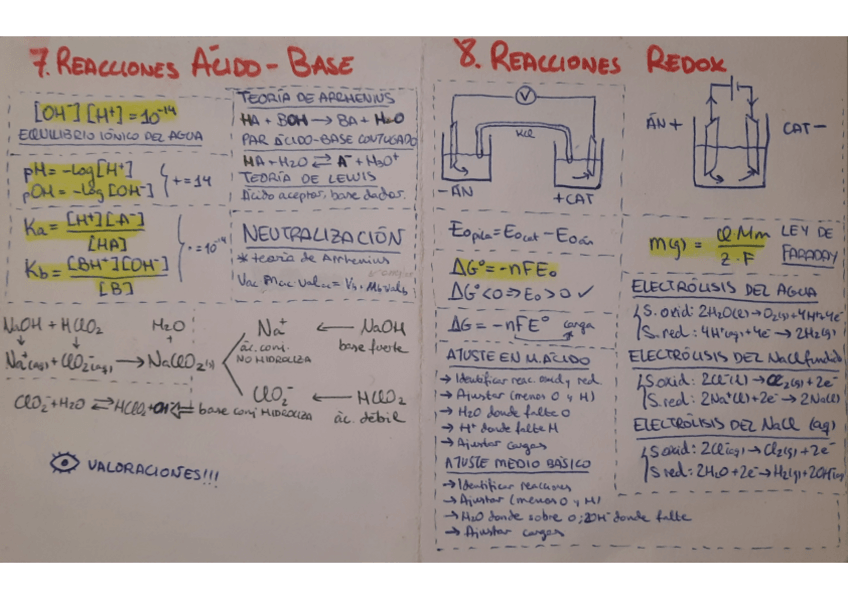 7. REACCIONES ÁCIDO-BASE
[OH⁻][H⁺]=10⁻¹⁴
EQUILIBRIO IÓNICO DEL AGUA
pH=-log[H⁺]
pOH=-log[OH⁻]
+=14
Ka=[H⁺][A⁻]
[HA]
Kb=[BH⁺][OH⁻]
[B]
·=10⁻¹⁴
TEORÍA DE ARRHENIUS
HA + BOH → BA + H₂O
PAR ÁCIDO-BASE CONJUGADO
HA+H₂O ⇄ A⁻ + H₃O⁺
TEORÍA DE LEWIS
Ácido aceptor, base dador.
NEUTRALIZACIÓN
*teoría de Arrhenius
Vac Mac valac = Vb·Mb valb
NaOH + HClO₂
H₂O
↓ ↓ +
Na⁺(aq)+ClO₂⁻(aq) → NaClO₂(s)
Na⁺ ← NaOH
ác. conj. base fuerte
NO HIDROLIZA
ClO₂⁻ ← HClO₂
base conj HIDROLIZA ác. débil
ClO₂⁻+H₂O ⇄ HClO₂+OH⁻
VALORACIONES!!!
8. REACCIONES REDOX
V
KCl
-ÁN
+CAT
ÁN+
CAT-
E₀pila=E₀cat - E₀án
ΔG°=-nFE₀
ΔG°<0⇒E₀>0 ✓
ΔG=-nFE°
carga
AJUSTE EN M. ÁCIDO
→ Identificar reac. oxid y red.
→ Ajustar (menos O y H)
→ H₂O donde falte O
→ H⁺ donde falte H
→ Ajustar cargas
AJUSTE MEDIO BÁSICO
→ Identificar reacciones
→ Ajustar (menos O y H)
→ H₂O donde sobre O; 2OH⁻ donde falte
→ Ajustar cargas
m(g) = Q Mm
z·F
LEY DE
FARADAY
ELECTRÓLISIS DEL AGUA
S. oxid: 2H₂O(l) → O₂(g)+4H⁺+4e⁻
S. red: 4H⁺(aq)+4e⁻ → 2H₂(g)
ELECTRÓLISIS DEL NaCl fundido
S. oxid: 2Cl⁻(l) → Cl₂(g)+2e⁻
S. red: 2Na⁺(l)+2e⁻ → 2Na(l)
ELECTRÓLISIS DEL NaCl (aq)
S oxid: 2Cl⁻(aq) → Cl₂(g)+2e⁻
S red: 2H₂O+2e⁻ → H₂(g)+2OH⁻(aq)